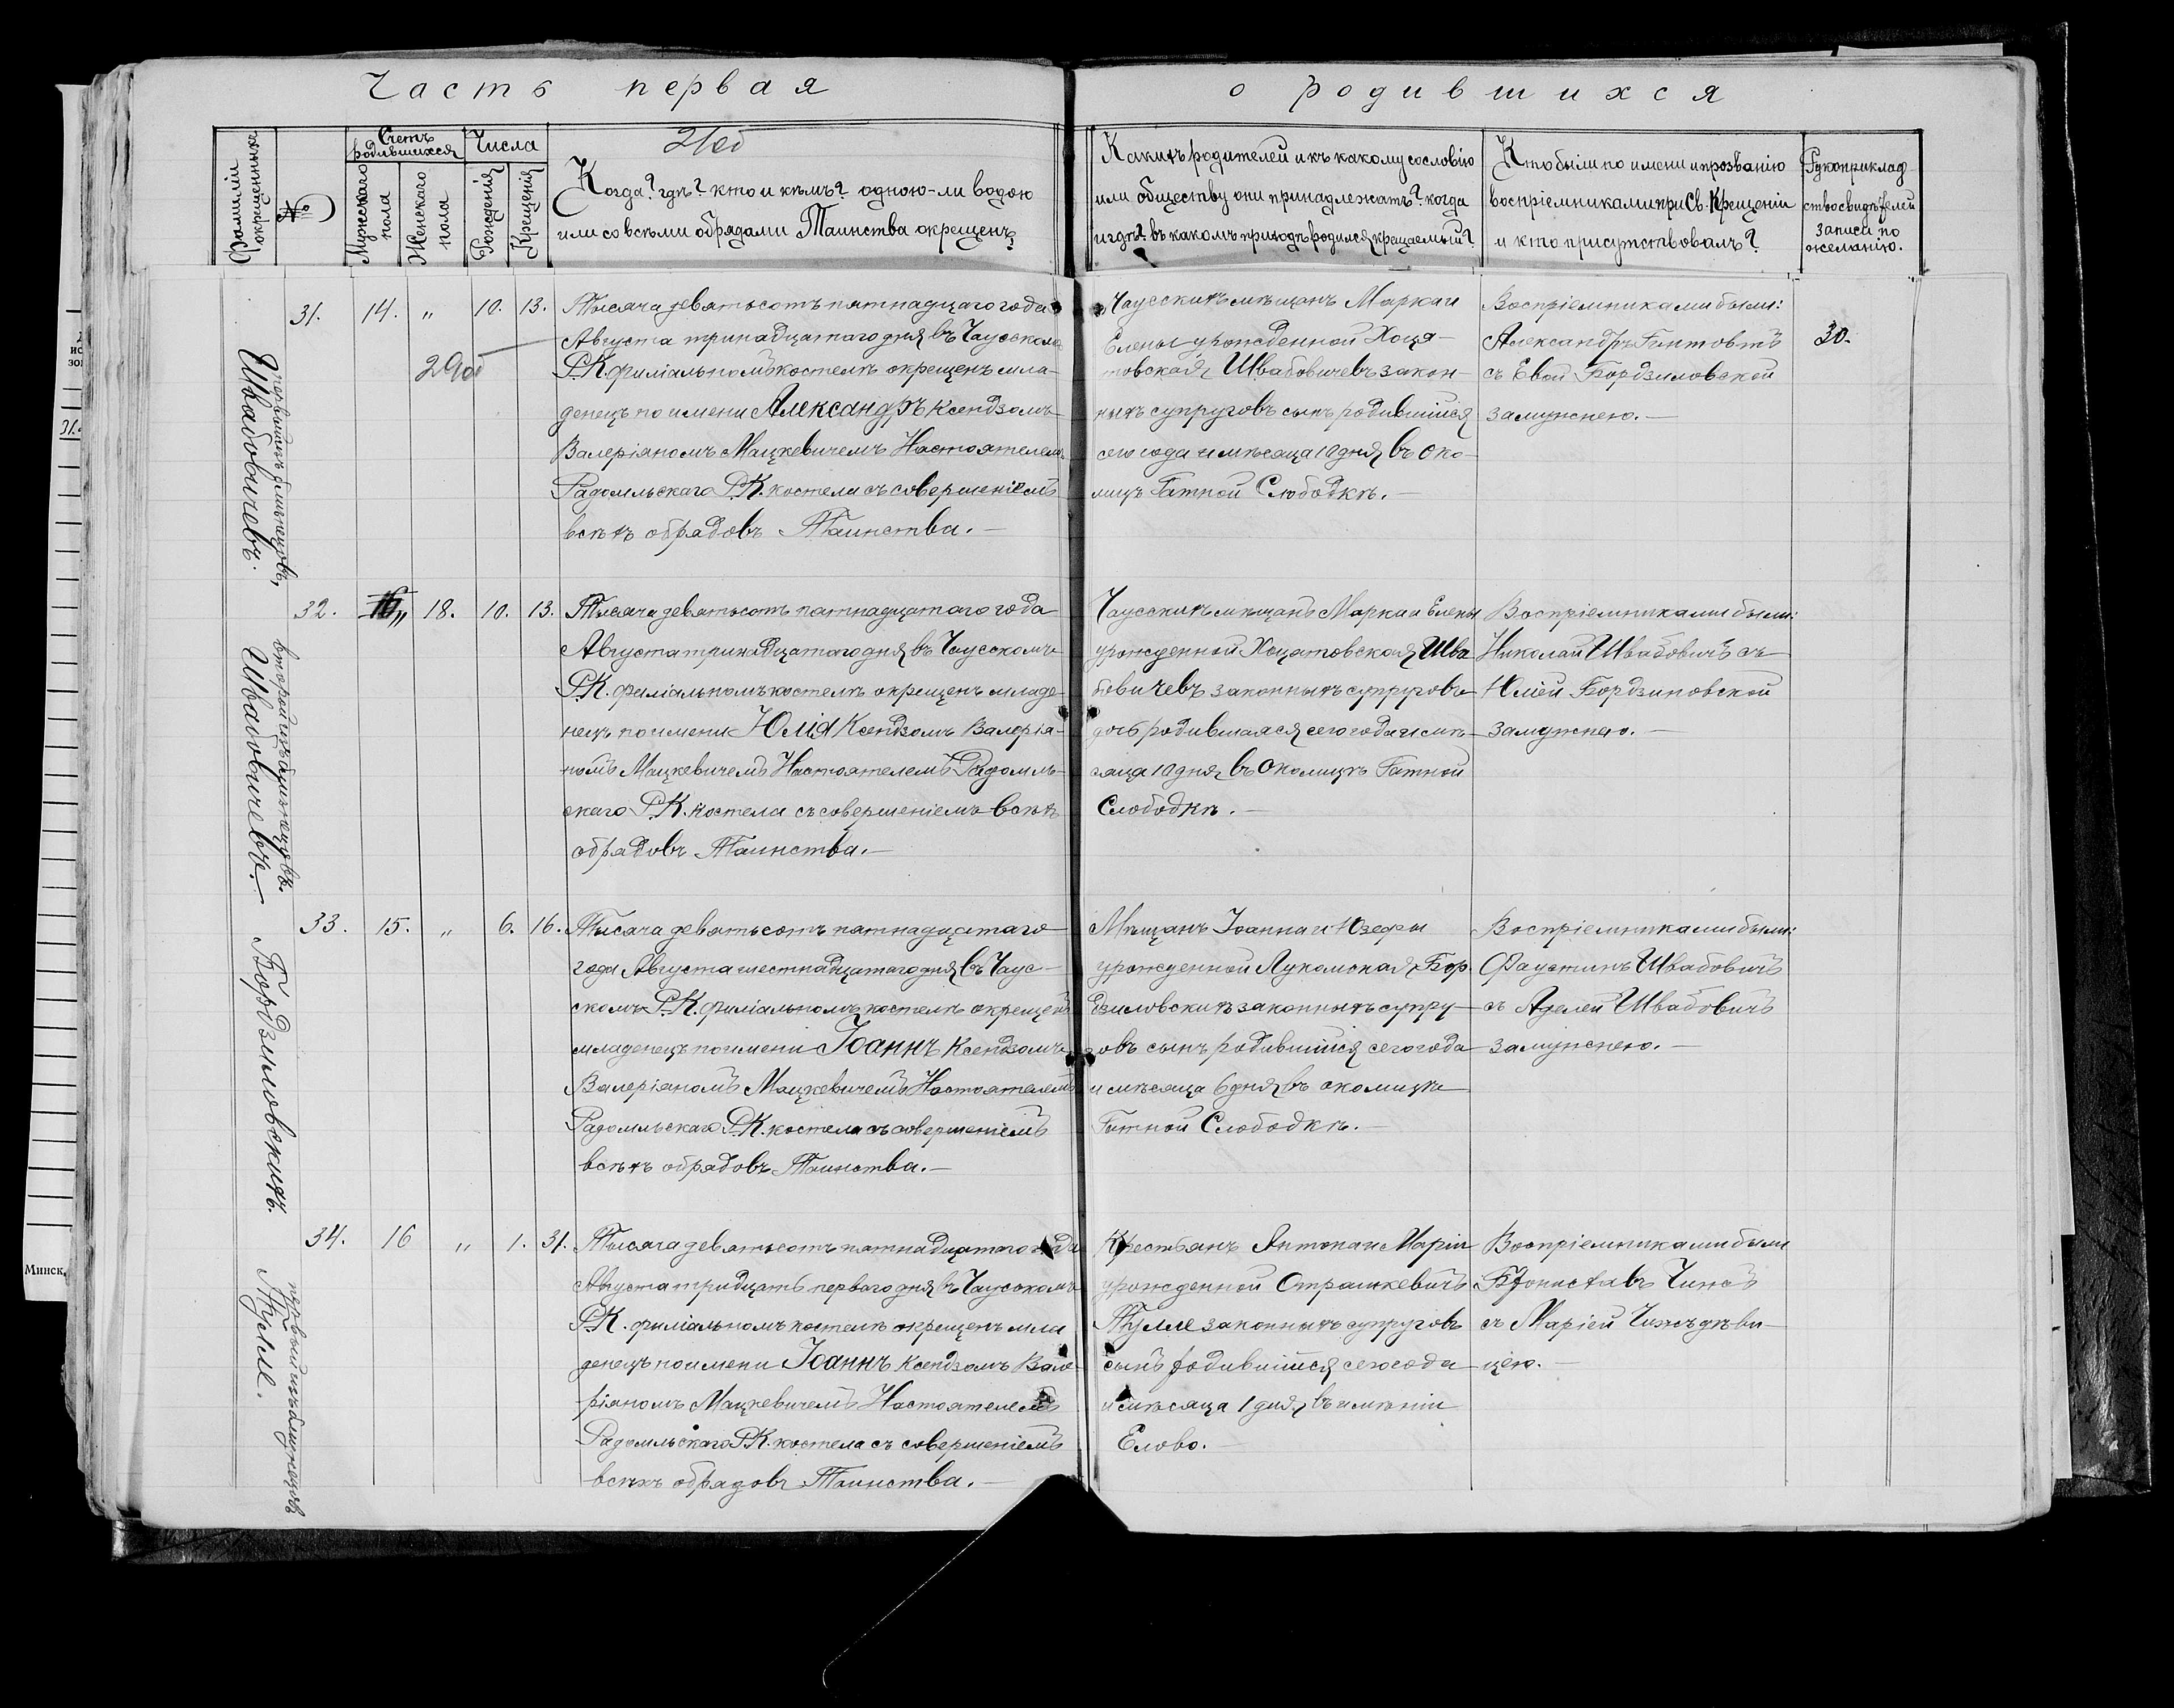 Часть первая о родившихся
Фамиліи окрещенныхъ
№
Счетъ родившихся
Мужескаго пола
Женскаго пола
Числа
Рожденія
Крещенія
Когда? гдѣ? кто и кѣмъ? одною-ли водою
или со всѣми обрядами Таинства окрещенъ?
Какихъ родителей и къ какому сословію
или обществу они принадлежатъ? когда
и гдѣ? въ какомъ приходѣ родился крещаемый?
Кто были по имени и прозванію
воспріемниками при Св. Крещеніи
и кто присутствовалъ?
Рукоприклад
ство свидѣтелей
записи по
желанію.
первый изъ близнецовъ,
Швабовичевъ.
31. 14. „ 10. 13.
Тысяча девятьсотъ пятнадцатаго года
Августа тринадцатаго дня въ Чаусскомъ
Р.К. филіальномъ костелѣ окрещенъ мла-
денецъ по имени Александръ Ксендзомъ
Валеріяномъ Мацкевичемъ Настоятелемъ
Радомльскаго Р.К. костела съ совершеніемъ
всѣхъ обрядовъ Таинства.—
Чаусскихъ мѣщанъ Марка и
Елены урожденной Хоця-
товская Швабовичевъ закон-
ныхъ супруговъ сынъ родившійся
сего года и мѣсяца 10 дня въ око-
лицѣ Гатной Слободкѣ.—
Воспріемниками были:
Александръ Гинтовтъ
съ Евой Бордзиловской
замужнею.—
30.
второй изъ близнецовъ.
Швабовичевъ.—
32. „ 18. 10. 13.
Тысяча девятьсотъ пятнадцатаго года
Августа тринадцатаго дня въ Чаусскомъ
Р.К. филіальномъ костелѣ окрещенъ младе-
нецъ по имени Юлія Ксендзомъ Валерія-
номъ Мацкевичемъ Настоятелемъ Радомль-
скаго Р.К. костела съ совершеніемъ всѣхъ
обрядовъ Таинства.—
Чаусскихъ мѣщанъ Марка и Елены
урожденной Хоцятовская Шва
бовичевъ законныхъ супруговъ
дочь родившаяся сего года и мѣ-
сяца 10 дня въ Околицѣ Гатной
Слободкѣ.—
Воспріемниками были:
Николай Швабовичъ съ
Юліей Бордзиловской
замужнею.—
Бордзиловскихъ.
33. 15. „ 6. 16.
Тысяча девятьсотъ пятнадцатаго
года Августа шестнадцатаго дня въ Чаус-
скомъ Р.К. филіальномъ костелѣ окрещенъ
младенецъ по имени Іоаннъ Ксендзомъ
Валеріяномъ Мацкевичемъ Настоятелемъ
Радомльскаго Р.К. костела съ совершеніемъ
всѣхъ обрядовъ Таинства.—
Мѣщанъ Іоанна и Юзефы
урожденной Лукомская Бор-
дзиловскихъ законныхъ супру-
говъ сынъ родившійся сего года
и мѣсяца 6 дня въ околицѣ
Гатной Слободкѣ.—
Воспріемниками были:
Фаустинъ Швабовичъ
съ Аделей Швабовичъ
замужнею.—
первый изъ близнецовъ
Тулле.
34. 16 „ 1. 31.
Тысяча девятьсотъ пятнадцатаго года
Августа тридцать перваго дня въ Чаусскомъ
Р.К. филіальномъ костелѣ окрещенъ мла
денецъ по имени Іоаннъ Ксендзомъ Вале-
ріяномъ Мацкевичемъ Настоятелемъ
Радомльскаго Р.К. костела съ совершеніемъ
всѣхъ обрядовъ Таинства.—
Крестьянъ Антона и Маріи
урожденной Страшкевичъ
Тулле законныхъ супруговъ
сынъ родившійся сего года
и мѣсяца 1 дня въ имѣніи
Елово.—
Воспріемниками были
Брониславъ
съ Маріей дѣви-
цею.—
Минск,